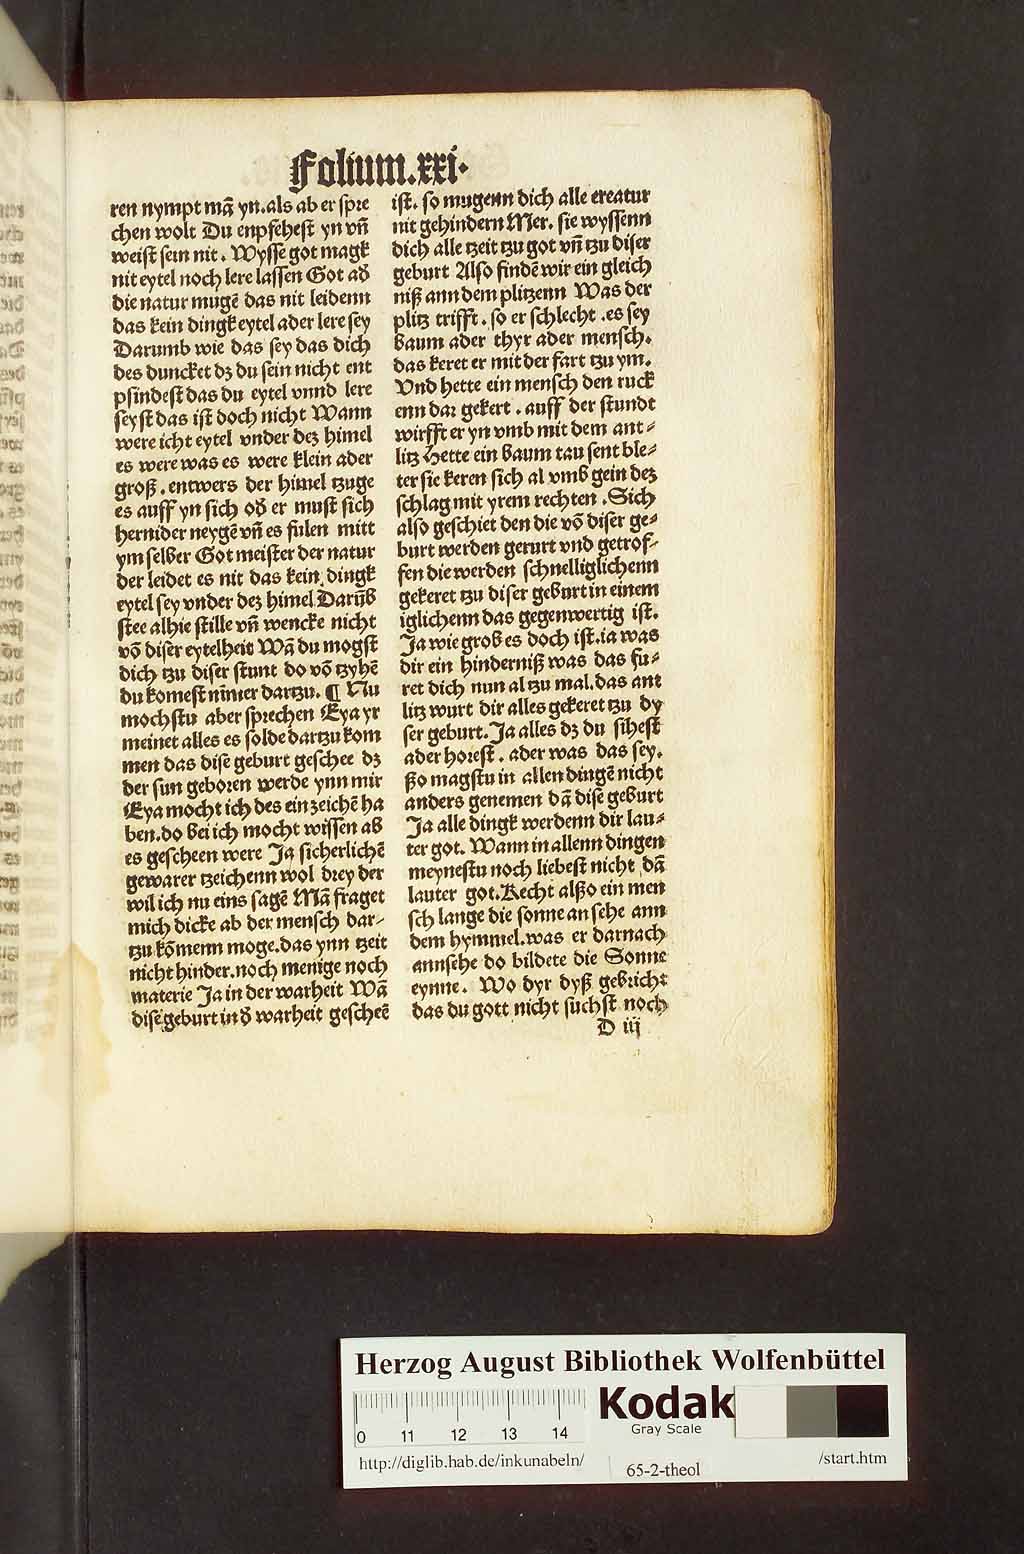 Folium.xxi.
ren nympt mā yn.als ab er spre
chen wolt Du enpfehest yn vn̄
weist sein nit. Wysse got magk
nit eytel noch lere lassen Got ad̄
die natur mugē das nit leidenn
das kein dingk eytel ader lere sey
Darumb wie das sey das dich
des duncket dz du sein nicht ent
pfindest das du eytel vnnd lere
seyst das ist doch nicht Wann
were icht eytel vnder dez himel
es were was es were klein ader
groß. entwers der himel tzuge
es auff yn sich od̄ er must sich
hernider neygē vn̄ es fulen mitt
ym selber Got meister der natur
der leidet es nit das kein dingk
eytel sey vnder dez himel Darūb
stee alhie stille vn̄ wencke nicht
vō diser eytelheit Wā du mogst
dich tzu diser stunt do vō tzyhē
du komest nim̄er dartzu. ¶ Nu
mochstu aber sprechen Eya yr
meinet alles es solde dartzu kom
men das dise geburt geschee dz
der sun geboren werde ynn mir
Eya mocht ich des ein zeichē ha
ben.do bei ich mocht wissen ab
es gescheen were Ja sicherlichē
gewarer tzeichenn wol drey der
wil ich nu eins sagē Mā fraget
mich dicke ab der mensch dar-
tzu kōmenn moge.das ynn tzeit
nicht hinder.noch menige noch
materie Ja in der warheit Wā
dise geburt in d̄ warheit gescheē
ist. so mugenn dich alle creatur
nit gehindern Mer. sie wyssenn
dich alle tzeit tzu got vn̄ tzu diser
geburt Also findē wir ein gleich
niß ann dem plitzenn Was der
plitz trifft. so er schlecht.es sey
baum ader thyr ader mensch.
das keret er mit der fart tzu ym.
Vnd hette ein mensch den ruck
enn dar gekert. auff der stundt
wirfft er yn vmb mit dem ant-
litz Hette ein baum tausent ble-
ter sie keren sich al vmb gein dez
schlag mit yrem rechten. Sich
also geschiet den die vō diser ge-
burt werden gerurt vnd getrof-
fen die werden schnelliglichenn
gekeret tzu diser geburt in einem
iglichenn das gegenwertig ist.
Ja wie grob es doch ist.ia was
dir ein hinderniß was das fu-
ret dich nun al tzu mal.das ant
litz wurt dir alles gekeret tzu dy
ser geburt.Ja alles dz du sihest
ader horest. ader was das sey.
ßo magstu in allen dingē nicht
anders genemen dā dise geburt
Ja alle dingk werdenn dir lau-
ter got. Wann in allenn dingen
meynestu noch liebest nicht dā
lauter got.Recht alßo ein men
sch lange die sonne an sehe ann
dem hymmel.was er darnach
annsehe do bildete die Sonne
eynne. Wo dyr dyß gebricht
das du gott nicht suchst noch
D iij
Herzog August Bibliothek Wolfenbüttel
Kodak
Gray Scale
0 11 12 13 14
http://diglib.hab.de/inkunabeln/
65-2-theol
/start.htm